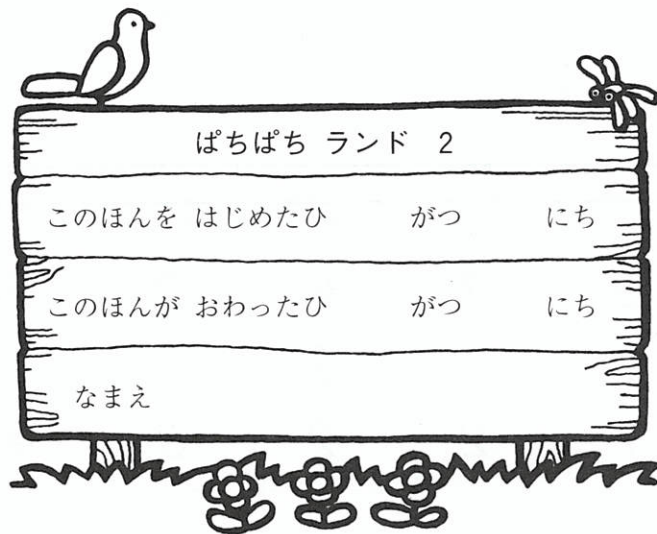 ぱちぱち ランド 2
このほんを はじめたひ がつ にち
このほんが おわったひ がつ にち
なまえ